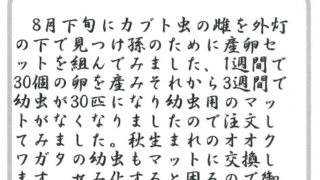 8月下旬にカブト虫の雌を外灯
の下で見つけ孫のために産卵セ
ットを組んでみました、1週間で
30個の卵を産みそれから3週間で
幼虫が30匹になり幼虫用のマッ
トがなくなりましたので注文し
てみました。秋生まれのオオク
ワガタの幼虫もマットに交換し
ます。サナギ化すると困るので御